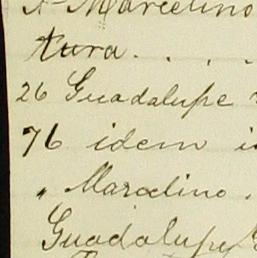 Marcelino
Aura . . . .
26 Guadalupe
76 idem
" Marcelino .
Guadalupe